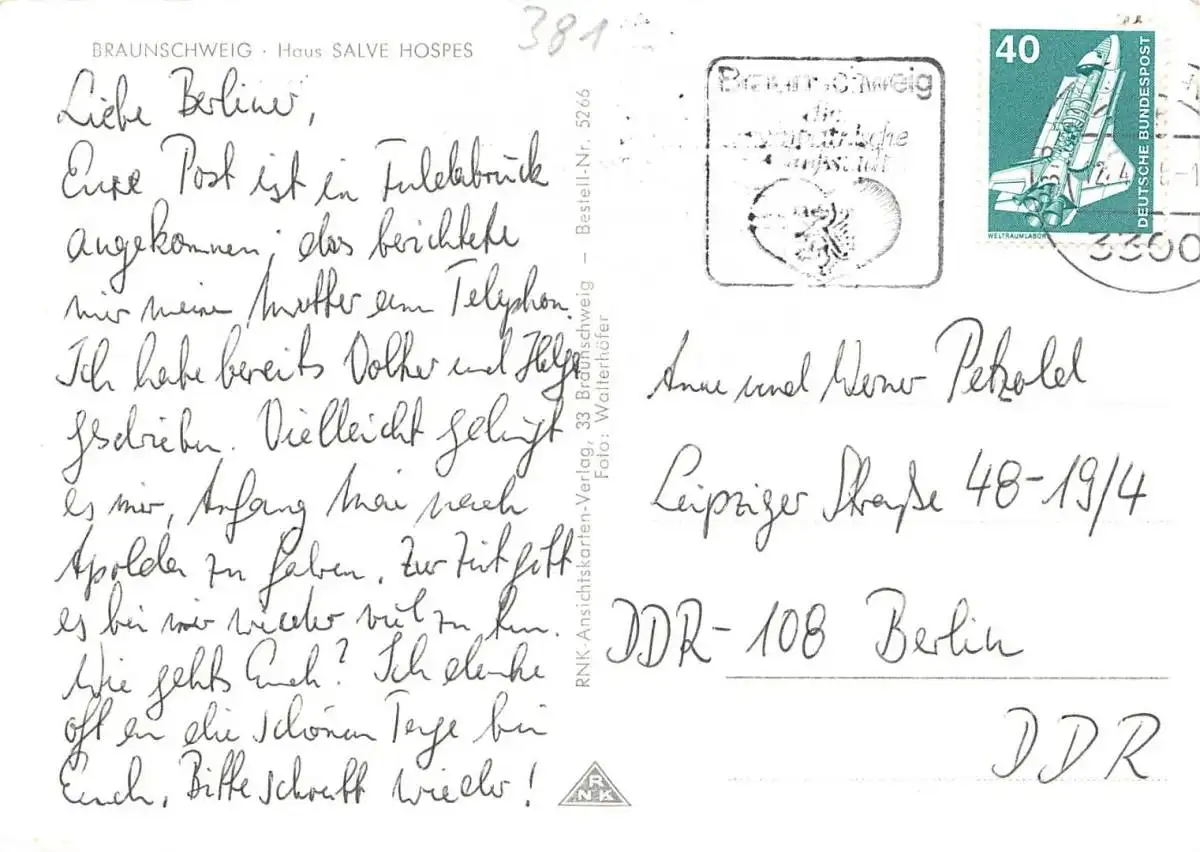 381
BRAUNSCHWEIG · Haus SALVE HOSPES
Liebe Berliner,
Eure Post ist in Fuldabrück
angekommen; das berichtete
mir meine Mutter am Telephon.
Ich habe bereits Volker und Helga
geschrieben. Vielleicht gelingt
es mir, Anfang Mai nach
Apolda zu fahren. Zur Zeit gibt
es bei mir wieder viel zu tun.
Wie gehts Euch? Ich denke
oft an die schönen Tage bei
Euch, Bitte schreibt wieder!
RNK-Ansichtskarten-Verlag, 33 Braunschweig – Bestell-Nr. 5266
Foto: Walterhöfer
RNK
Braunschweig
die
40
DEUTSCHE BUNDESPOST
WELTRAUMLABOR
3300
Anne und Werner Petzold
Leipziger Straße 48-19/4
DDR-108 Berlin
DDR